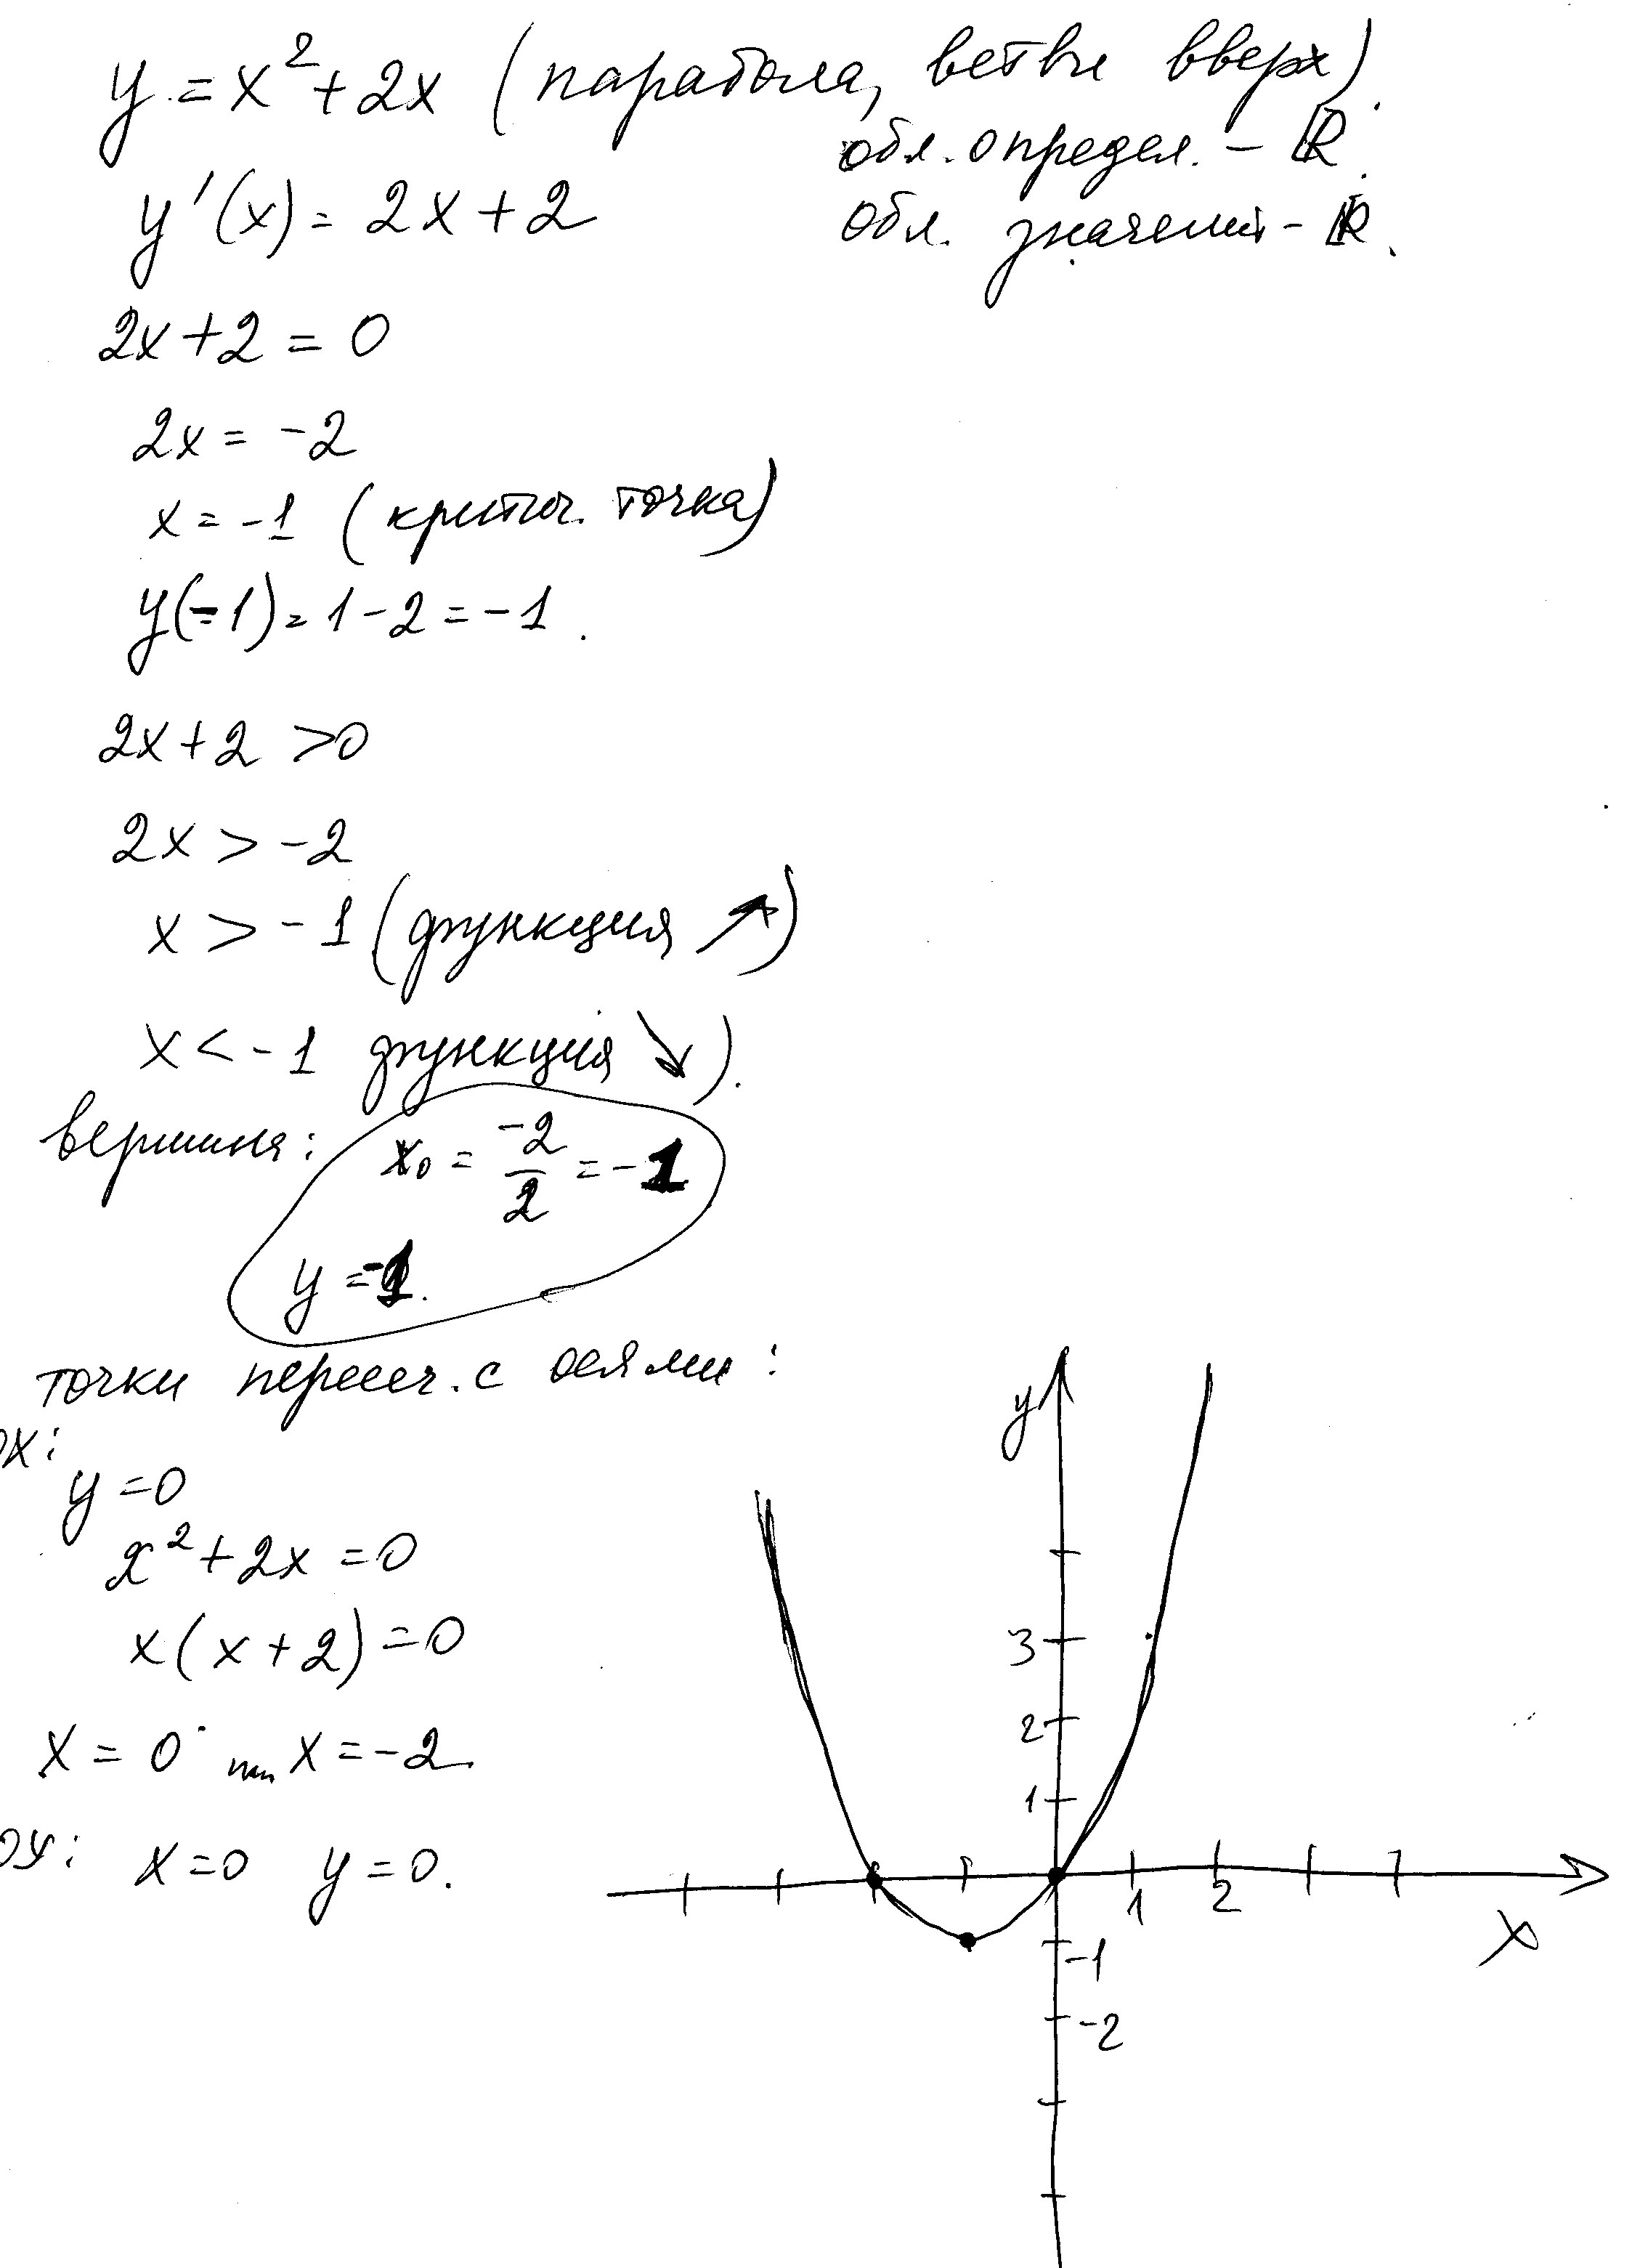 y = x² + 2x (парабола, ветви вверх).
обл. определ. - ℝ.
y'(x) = 2x + 2
обл. значений - ℝ.
2x + 2 = 0
2x = -2
x = -1 (критич. точка)
y(-1) = 1 - 2 = -1.
2x + 2 > 0
2x > -2
x > -1 (функция ↗)
x < -1 функция ↘).
вершина: x₀ = -2/2 = -1
y = -1.
точки пересеч. с осями:
ox:
y = 0
x² + 2x = 0
x(x + 2) = 0
x = 0 или x = -2.
oy: x = 0 y = 0.
y
3
2
1
1 2
x
-1
-2